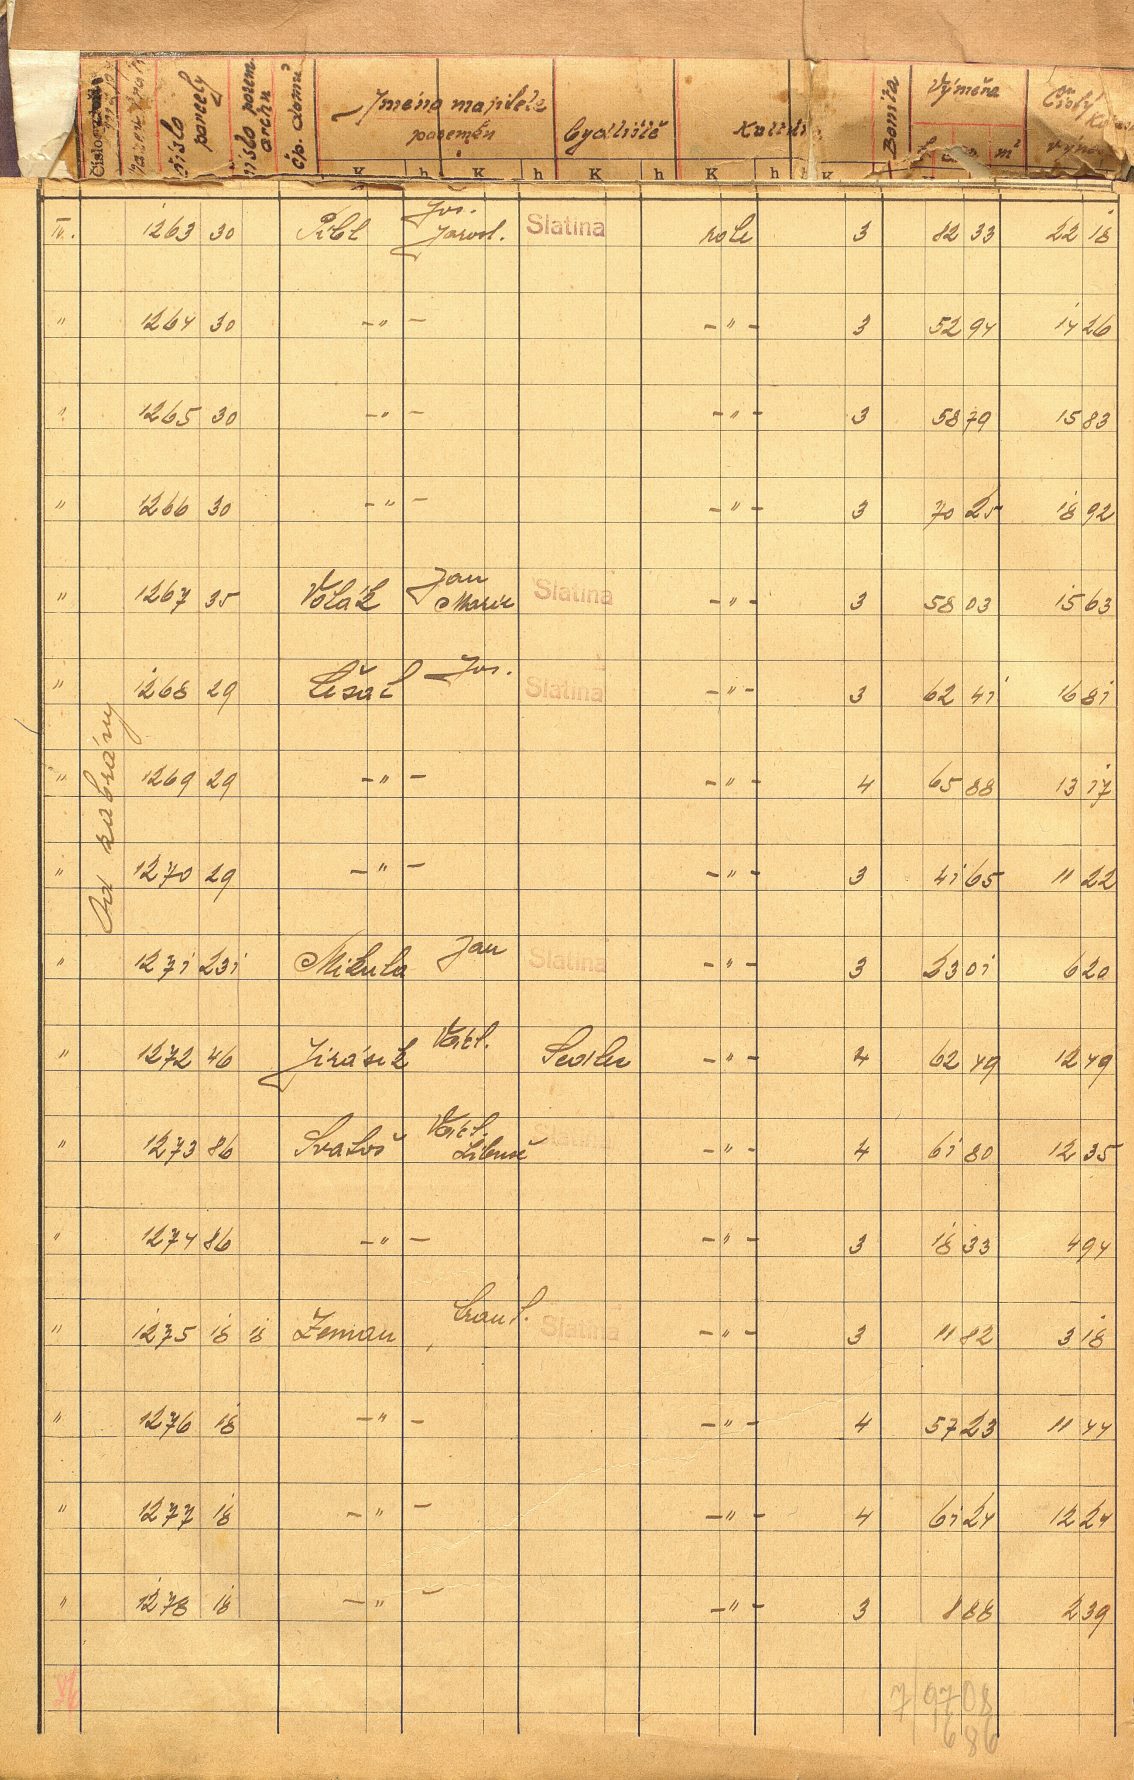 číslo parcely
číslo pozem. archu
čp. domů
Jména majitele pozemku
Bydliště
Kultura
Bonita
Výměra
m²
Čistý
K h K h K h K h K
IV. 1263 30 Jos. Jarosl. Slatina role 3 82 33 22 18
" 1264 30 -"- -"- 3 52 94 14 26
" 1265 30 -"- -"- 3 58 79 15 83
" 1266 30 -"- -"- 3 70 25 18 92
" 1267 35 Volák Jan Marie Slatina -"- 3 58 03 15 63
" 1268 29 Jos. Slatina -"- 3 62 41 16 81
" 1269 29 -"- -"- 4 65 88 13 17
" 1270 29 -"- -"- 3 41 65 11 22
Od zabrány
" 1271 231 Mikula Jan Slatina -"- 3 23 01 6 20
" 1272 46 Jirásek Sedlec -"- 4 62 49 12 49
" 1273 86 Svatoš Libuše Slatina -"- 4 61 80 12 35
" 1274 86 -"- -"- 3 18 33 4 94
" 1275 18 18 Zeman Frant. Slatina -"- 3 11 82 3 18
" 1276 18 -"- -"- 4 57 23 11 44
" 1277 18 -"- -"- 4 61 24 12 24
" 1278 18 -"- -"- 3 8 88 2 39
7/97 08
686